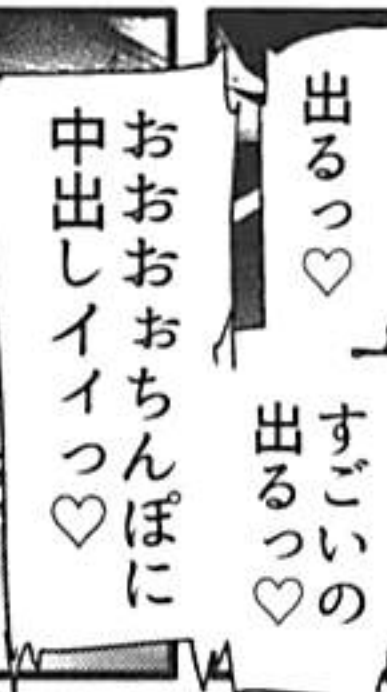 出るっ♡
すごいの
出るっ♡
おおおぉちんぽに
中出しイイっ♡